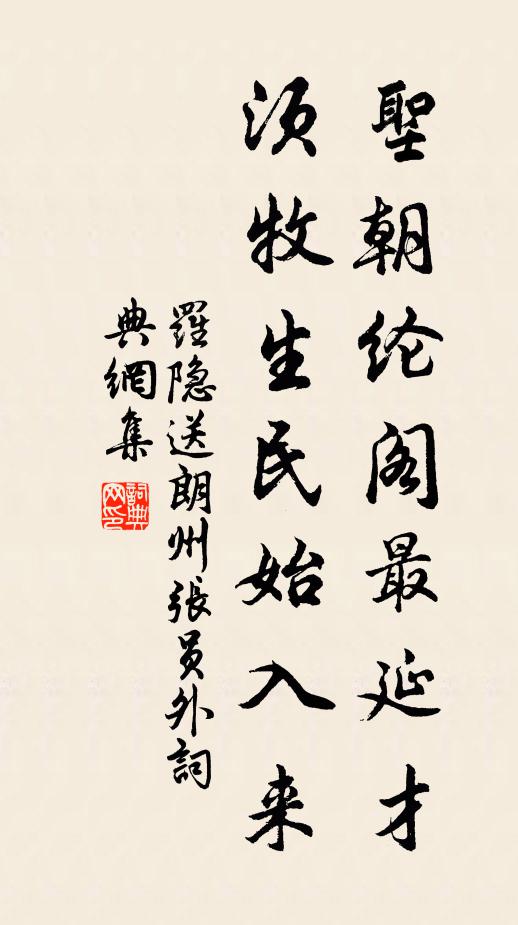 聖朝纶阁最延才
须牧生民始入来
羅隐送朗州張员外詞
典網集
詞典网印